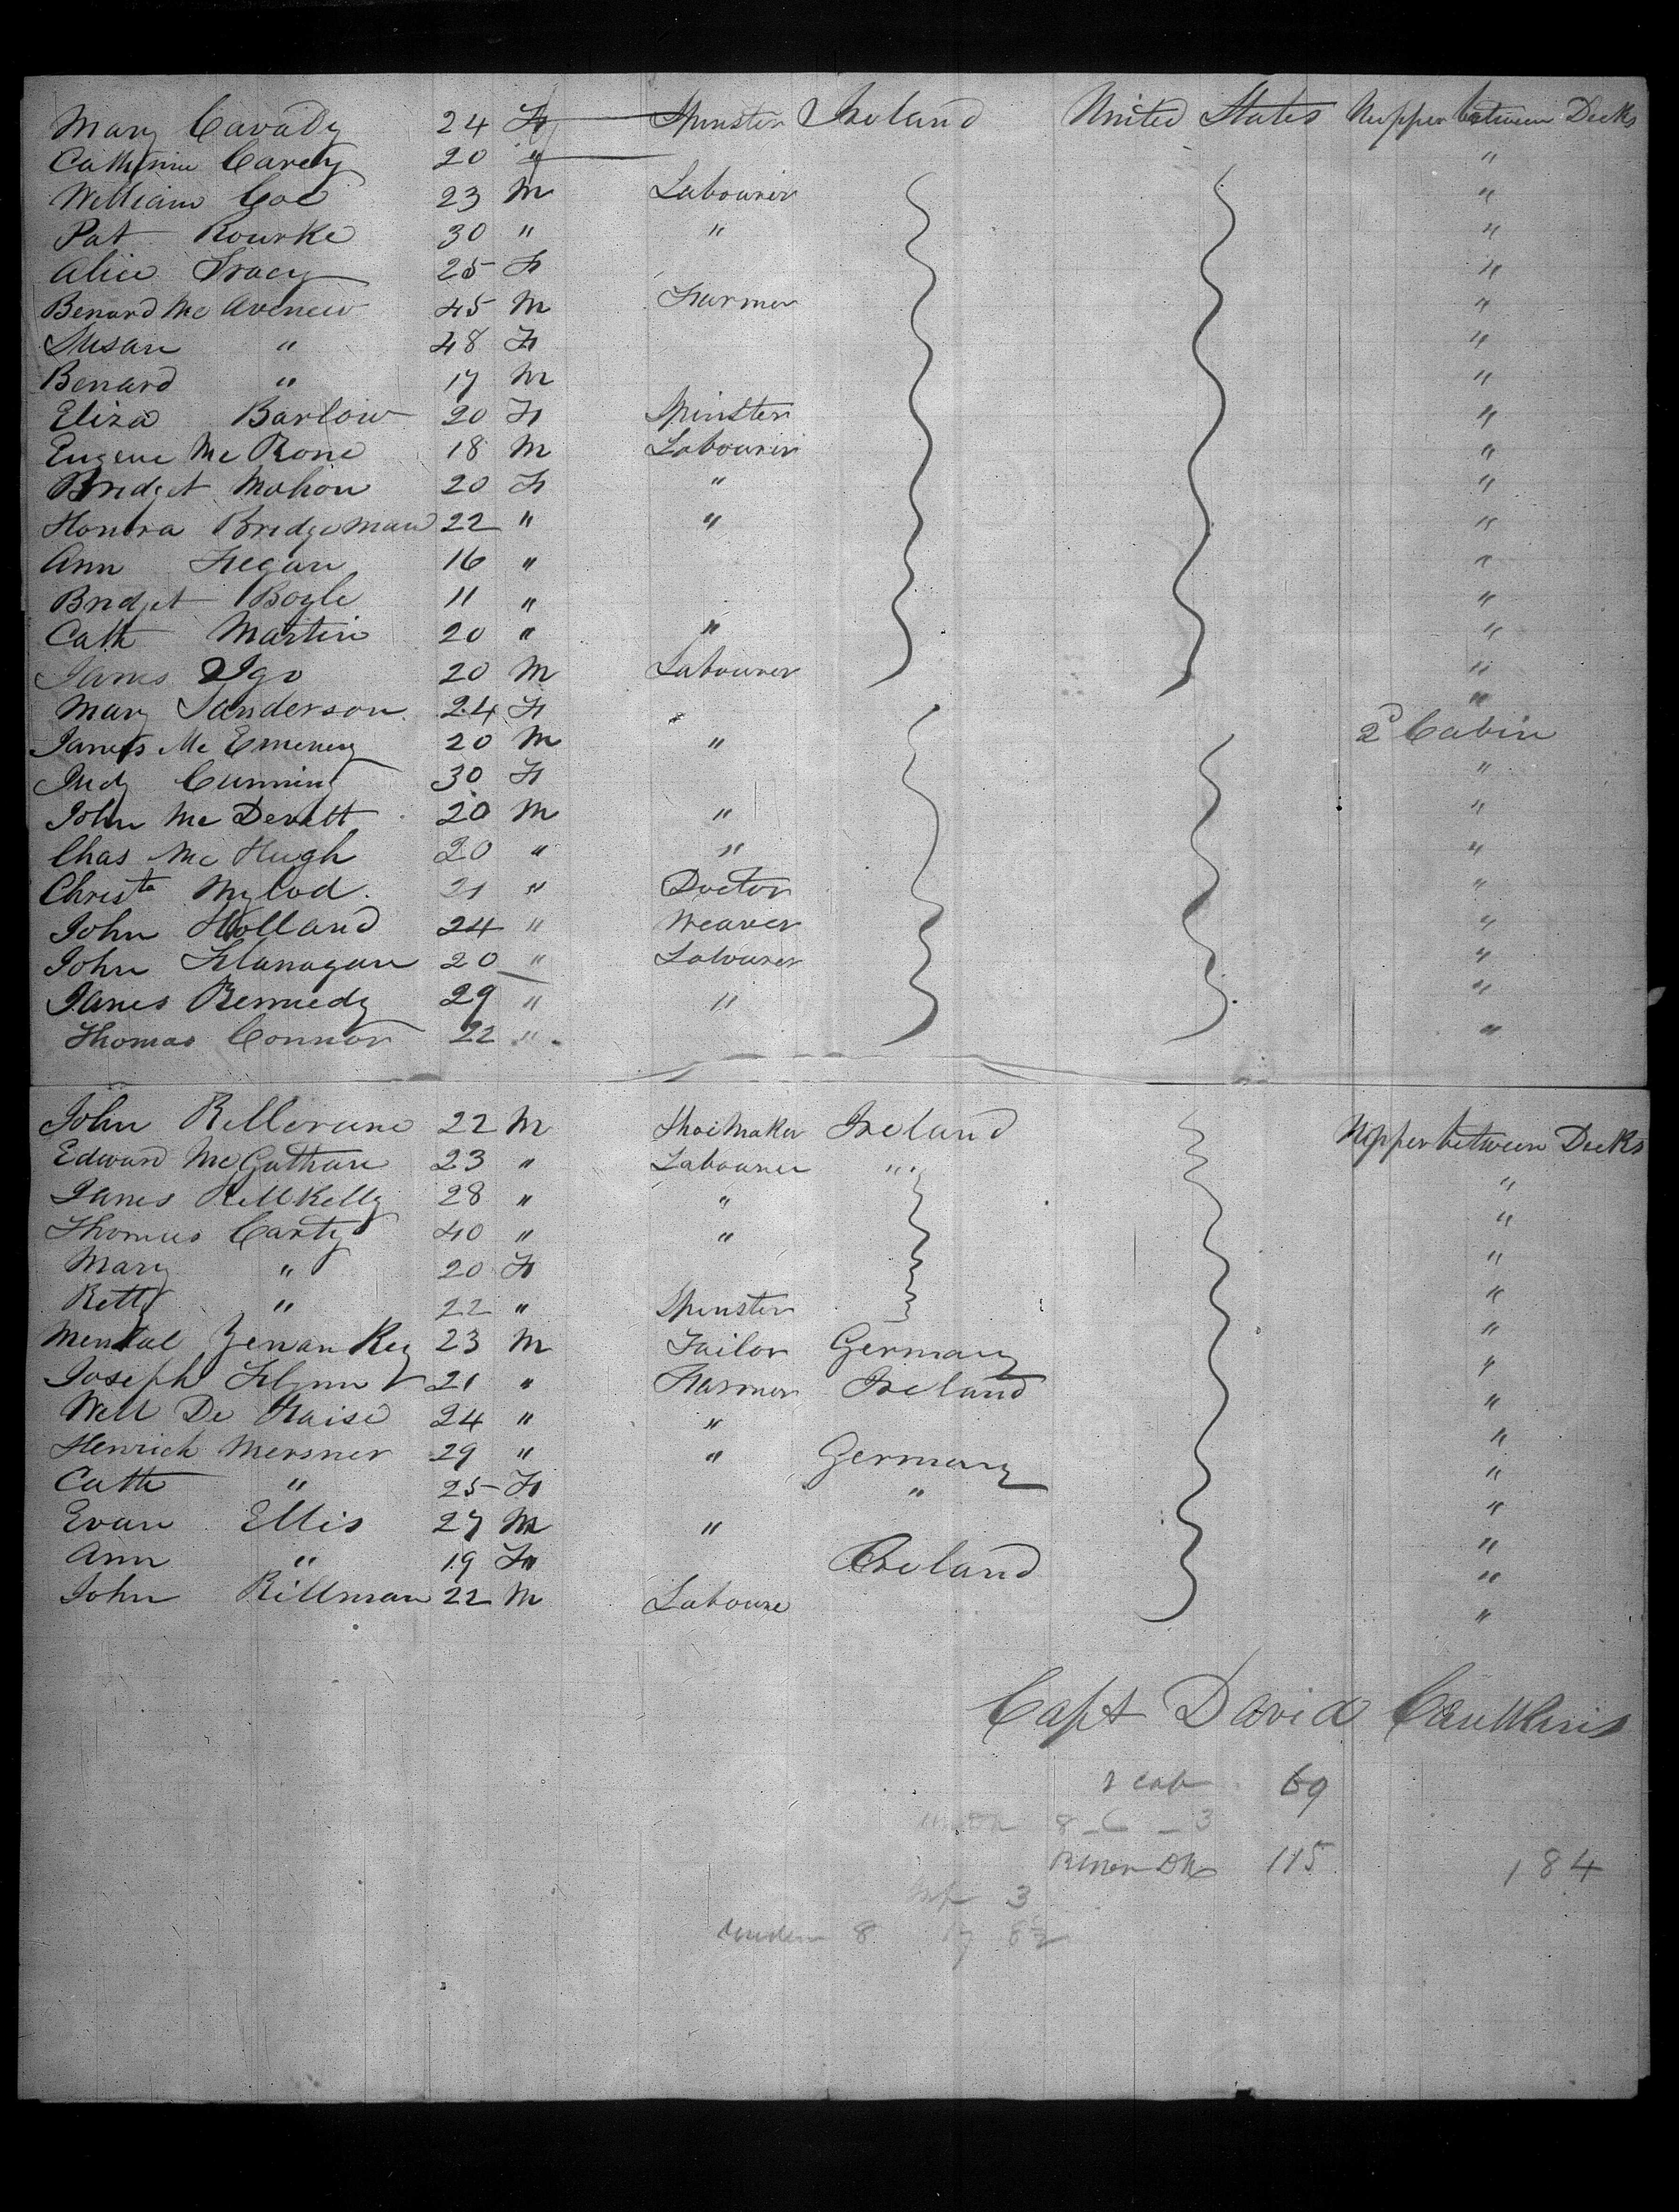 Mary Cavady 24 F Spinster Ireland United States Nupper between Decks
Catherine Carety 20 " "
William Coe 23 M Labourer "
Pat Rourke 30 " " "
Alice Tracy 25 F "
Benard Mc Avenew 45 M Farmer "
Susan " 48 F "
Benard " 17 M "
Eliza Barlow 20 F Spinster "
Eugene Mc Rone 18 M Labourer "
Bridget Mahon 20 F " "
Honora Bridgeman 22 " " "
Ann Fegan 16 " "
Bridget Boyle 11 " "
Cath Martin 20 " " "
James Igo 20 M Labourer "
Mary Sanderson 24 F "
James Mc Emeney 20 M " 2d Cabin
Judy Cunning 30 F "
John Mc Devitt 20 M " "
Chas Mc Hugh 20 " " "
Christ Mylod 21 " Doctor "
John Holland 24 " Weaver "
John Flanagan 20 " Labourer "
James Kennedy 29 " " "
Thomas Connor 22 " "
John Killerane 22 M Shoe Maker Ireland Upper between Decks
Edward Mc Gathan 23 " Labourer " "
James Killkelly 28 " " "
Thomas Carty 40 " " "
Mary " 20 F "
Kitty " 22 " Spinster "
23 M Tailor Germany "
Joseph Flynn 21 " Farmer Ireland "
Will De Raise 24 " " "
Henrich Mersner 29 " " Germany "
Cath " 25 F " "
Evan Ellis 27 M " "
Ann " 19 F Ireland "
John Killman 22 M Laboure "
Capt David Caulkins
2 cab 69
8 6 3
115 184
3
8 17